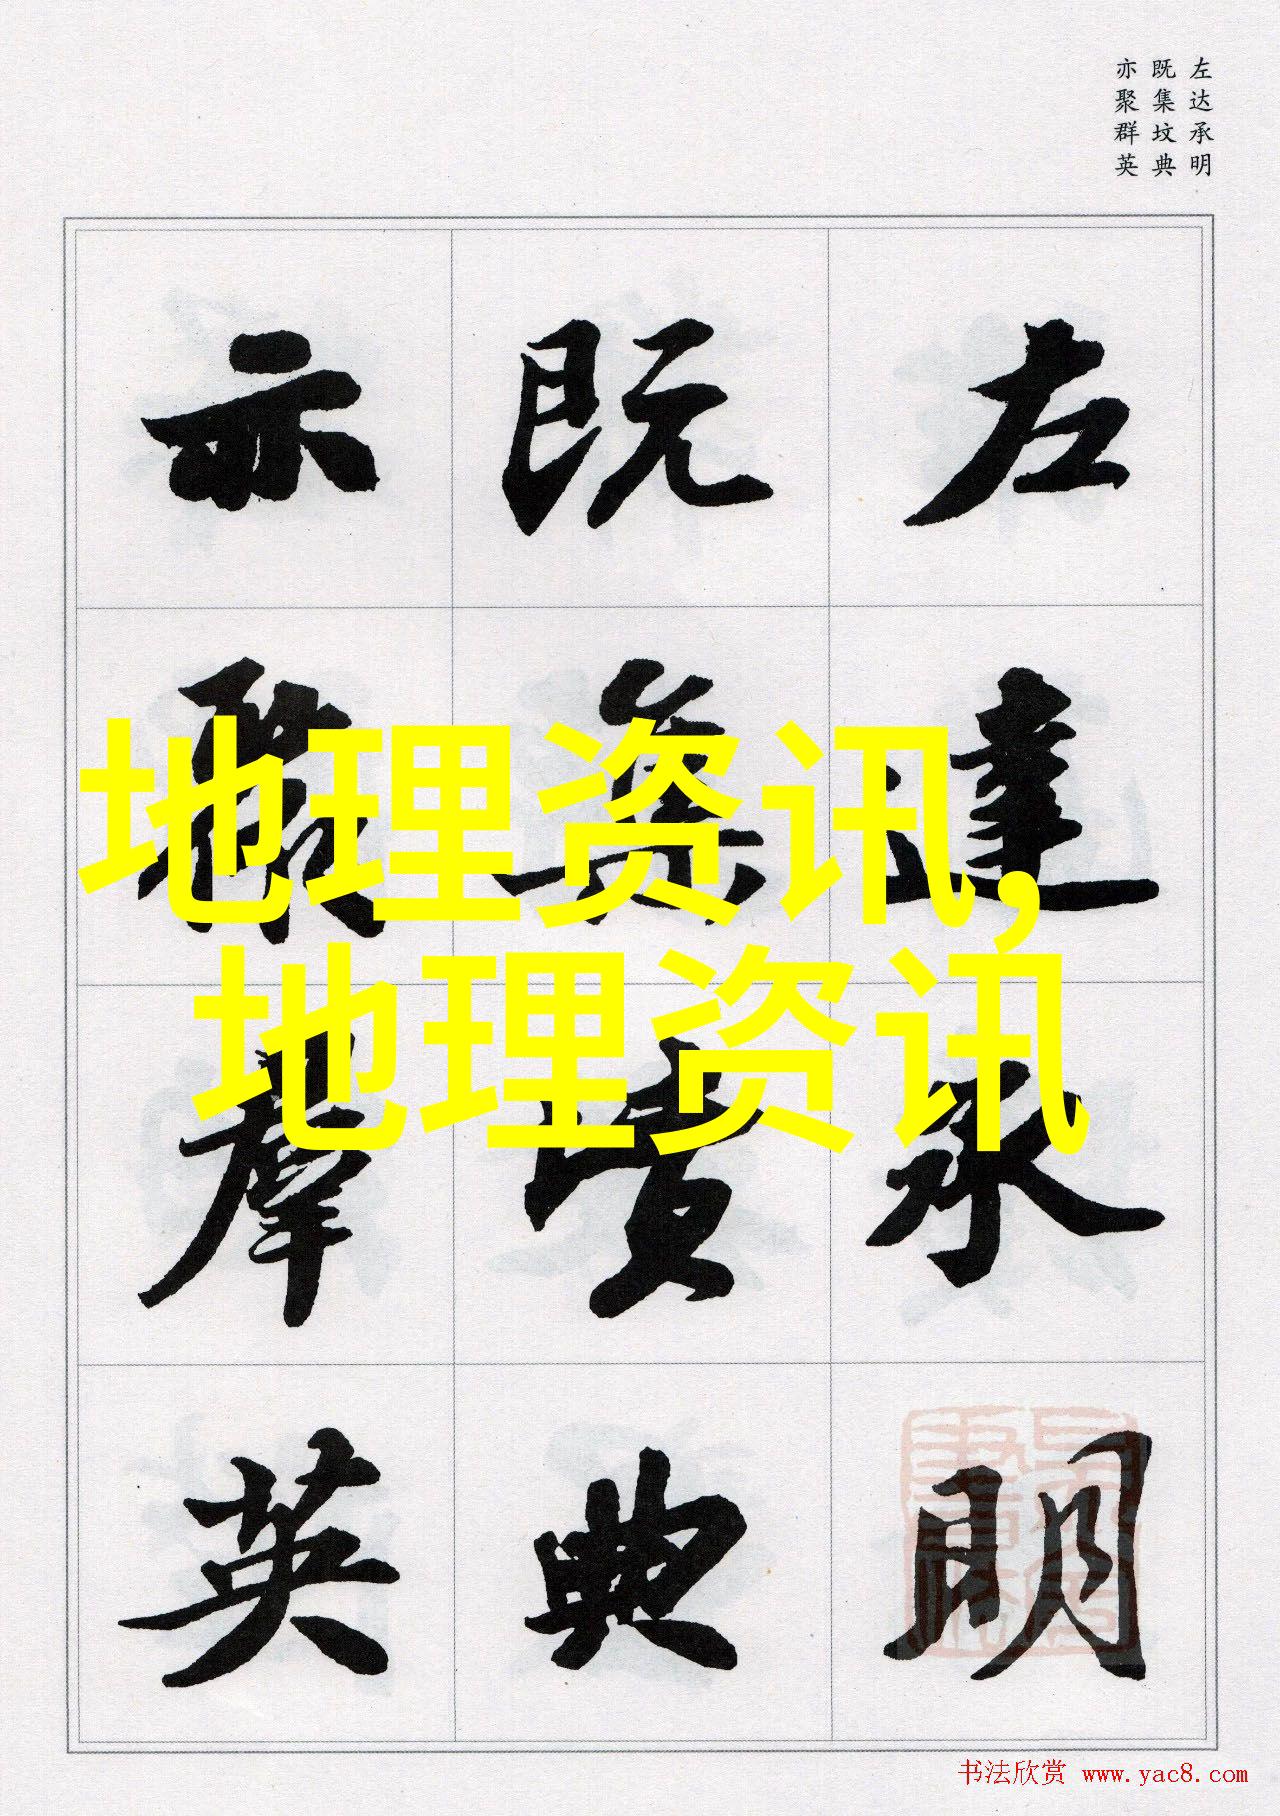 左达承明
既集坟典
亦聚群英
左達承明
既集墳典
亦聚羣英
地理资讯,
地理资讯
书法欣赏 www.yac8.com